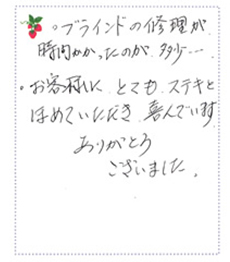 ・ブラインドの修理が
時間かかったのが、多少…
・お客様に、とても、ステキと
ほめていただき、喜んでいます
ありがとう
ございました。